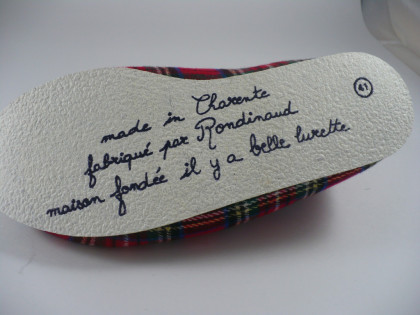 41
made in Charente
fabriqué par Rondinaud
maison fondée il y a belle lurette